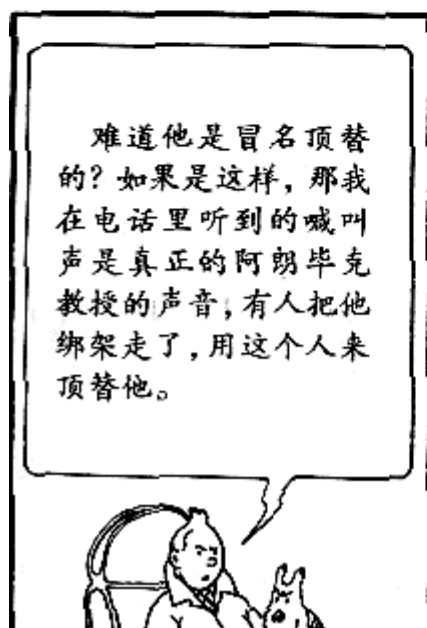 难道他是冒名顶替
的？如果是这样，那我
在电话里听到的喊叫
声是真正的阿朗毕克
教授的声音，有人把他
绑架走了，用这个人来
顶替他。